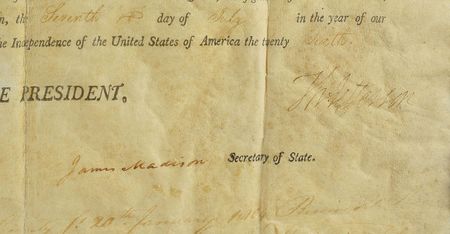 n, the Seventh day of July in the year of our
he Independence of the United States of America the twenty Sixth.
E PRESIDENT,
Th Jefferson
James Madison Secretary of State.
20th January